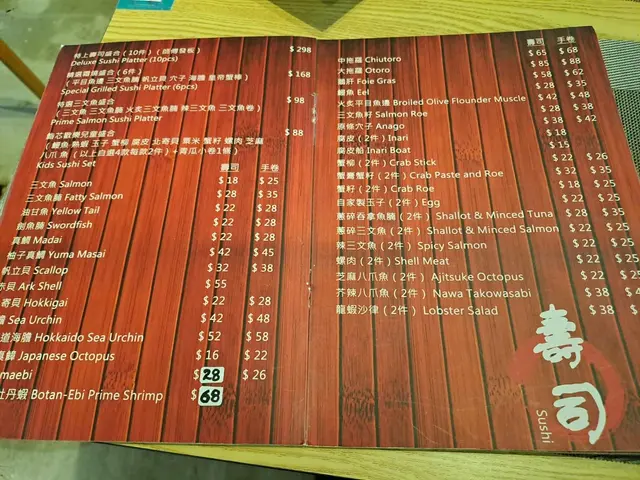 特上壽司盛合（10件）（
Deluxe Sushi Platter (10pcs) $ 298
精選環燒盛合（6件）
（平目魚邊 三文魚腩 帆立貝 穴子 海膽 皇帝蟹棒） $ 168
Special Grilled Sushi Platter (6pcs)
特選三文魚盛合
（三文魚 三文魚腩 火炙三文魚腩 辣三文魚 三文魚卷） $ 98
Prime Salmon Sushi Platter
歡騰兒童盛合
（鰻魚 熱蝦 玉子 蟹柳 腐皮 北寄貝 粟米 蟹籽 螺肉 芝麻 $ 88
八爪魚（以上自選4款每款2件）+青瓜小卷1條）
Kids Sushi Set
壽司 手卷
三文魚 Salmon $ 18 $ 25
三文魚腩 Fatty Salmon $ 28 $ 35
油甘魚 Yellow Tail $ 22 $ 28
劍魚腩 Swordfish $ 22 $ 28
真鯛 Madai $ 22 $ 28
柚子真鯛 Yuma Masai $ 42 $ 45
帆立貝 Scallop $ 32 $ 38
赤貝 Ark Shell $ 55
寄貝 Hokkigai $ 22 $ 28
膽 Sea Urchin $ 42 $ 48
道海膽 Hokkaido Sea Urchin $ 52 $ 58
Japanese Octopus $ 16 $ 22
maebi $ 28 $ 26
牡丹蝦 Botan-Ebi Prime Shrimp $ 68
壽司 手卷
中拖羅 Chiutoro $ 65 $ 68
大拖羅 Otoro $ 85 $ 88
鵝肝 Foie Gras $ 58 $ 62
鰻魚 Eel $ 28 $ 35
火炙平目魚邊 Broiled Olive Flounder Muscle $ 42 $ 48
三文魚籽 Salmon Roe $ 28 $ 38
原條穴子 Anago $ 38 $ 42
腐皮（2件）Inari $ 18
腐皮船 Inari Boat $ 15
蟹柳（2件）Crab Stick $ 22 $ 26
蟹膏蟹籽（2件）Crab Paste and Roe $ 32 $ 35
蟹籽（2件）Crab Roe $ 18 $ 25
自家製玉子（2件）Egg $ 22 $ 25
蔥碎吞拿魚腩（2件）Shallot & Minced Tuna $ 28 $ 35
蔥碎三文魚（2件）Shallot & Minced Salmon $ 22 $ 25
辣三文魚（2件）Spicy Salmon $ 22 $ 25
螺肉（2件）Shell Meat $ 22 $ 25
芝麻八爪魚（2件）Ajitsuke Octopus $ 22 $ 25
芥辣八爪魚（2件）Nawa Takowasabi $ 38 $ 4
龍蝦沙律（2件）Lobster Salad $ 38 $
壽司
Sushi